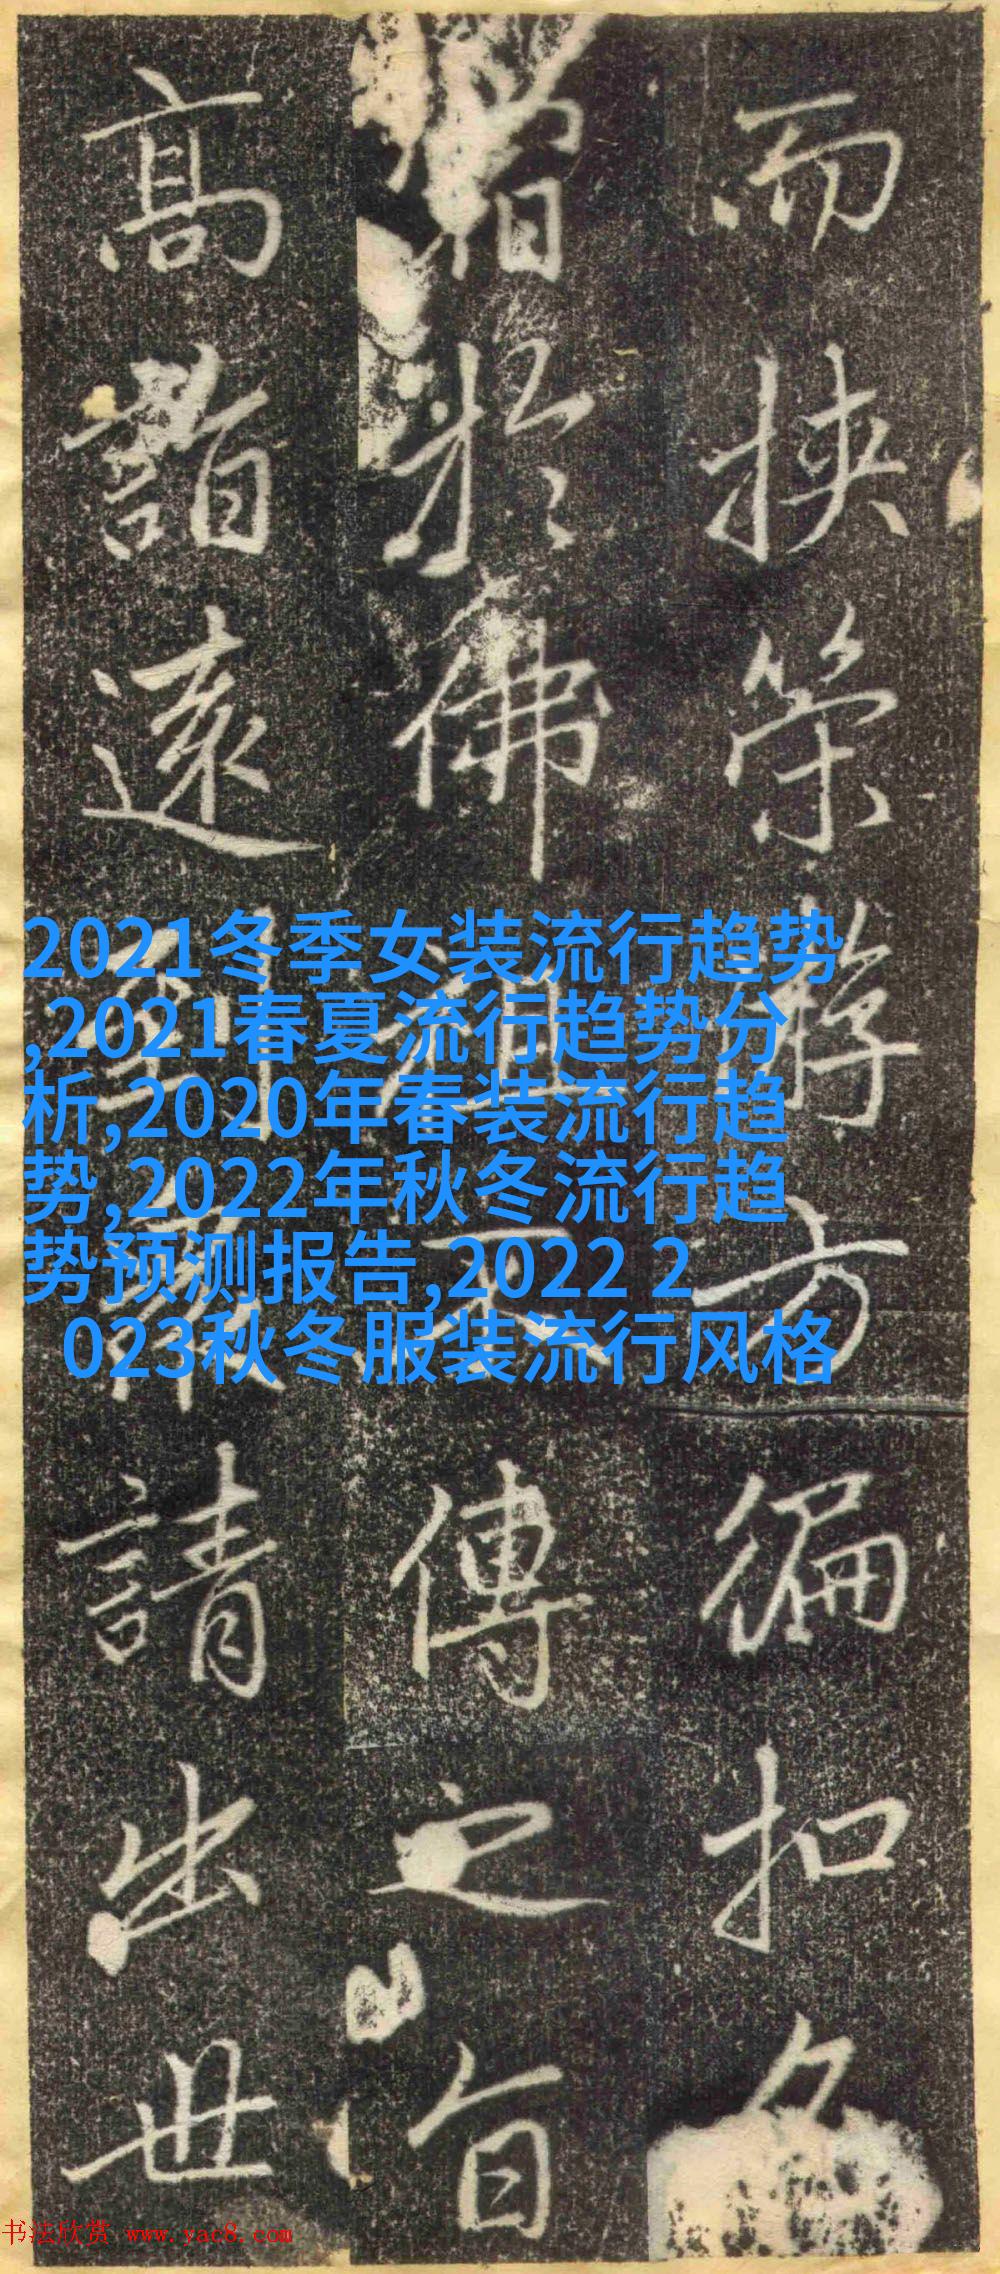 而挾策游方徧扣
於佛祖不傳之旨
高詣遠到請出世
2021冬季女装流行趋势
,2021春夏流行趋势分
析,2020年春装流行趋
势,2022年秋冬流行趋
势预测报告,2022 2
023秋冬服装流行风格
书法欣赏 www.yac8.com